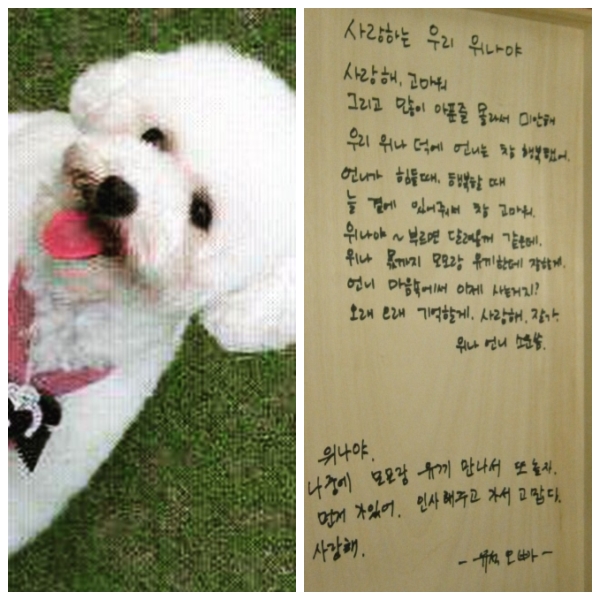 사랑하는 우리 위나야
사랑해. 고마워
그리고 많이 아픈줄 몰라서 미안해
우리 위나 덕에 언니는 참 행복했어.
언니가 힘들때, 행복할 때
늘 곁에 있어줘서 참 고마워.
위나야 ~ 부르면 달려올게 같은데.
위나 몫까지 모모랑 유끼한테 잘할게.
언니 마음속에서 이제 사는거지?
오래 오래 기억할게. 사랑해. 잘가
위나 언니 소운쓸.
위나야.
나중에 모모랑 유끼 만나서 또 놀자.
먼저 가있어. 인사해주고 가서 고맙다.
사랑해.
- 오빠 -